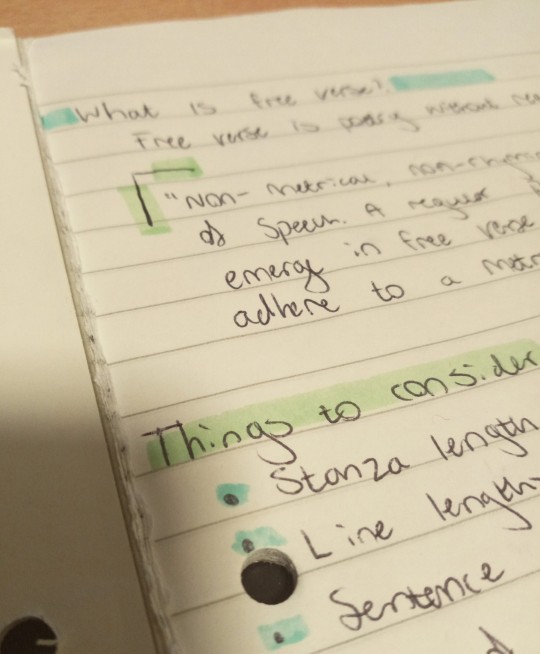 What is free verse?
Free verse is poetry without
"Non-metrical, non-rhyming
of Speech. A regular
emerge in free verse
adhere to a
Things to consider
Stanza length
Line length
Sentence